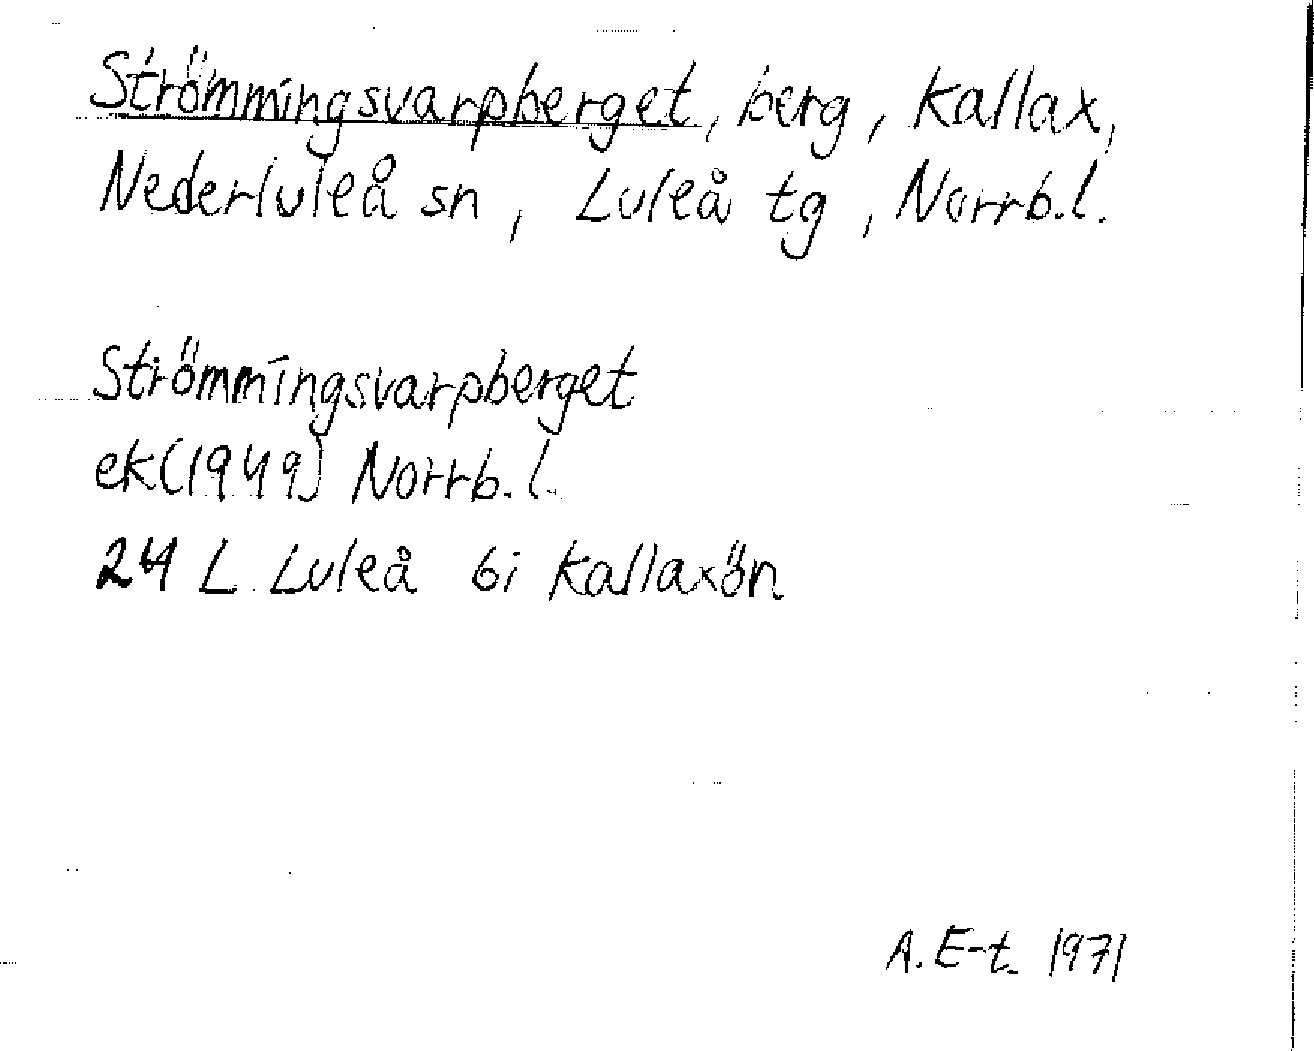 Strömmingsvarpberget, berg, Kallax,
Nederluleå sn, Luleå tg, Norrb.l.
Strömmingsvarpberget
ek(1949) Norrb.l.
24 L Luleå 6i Kallaxön
A. E-t. 1971